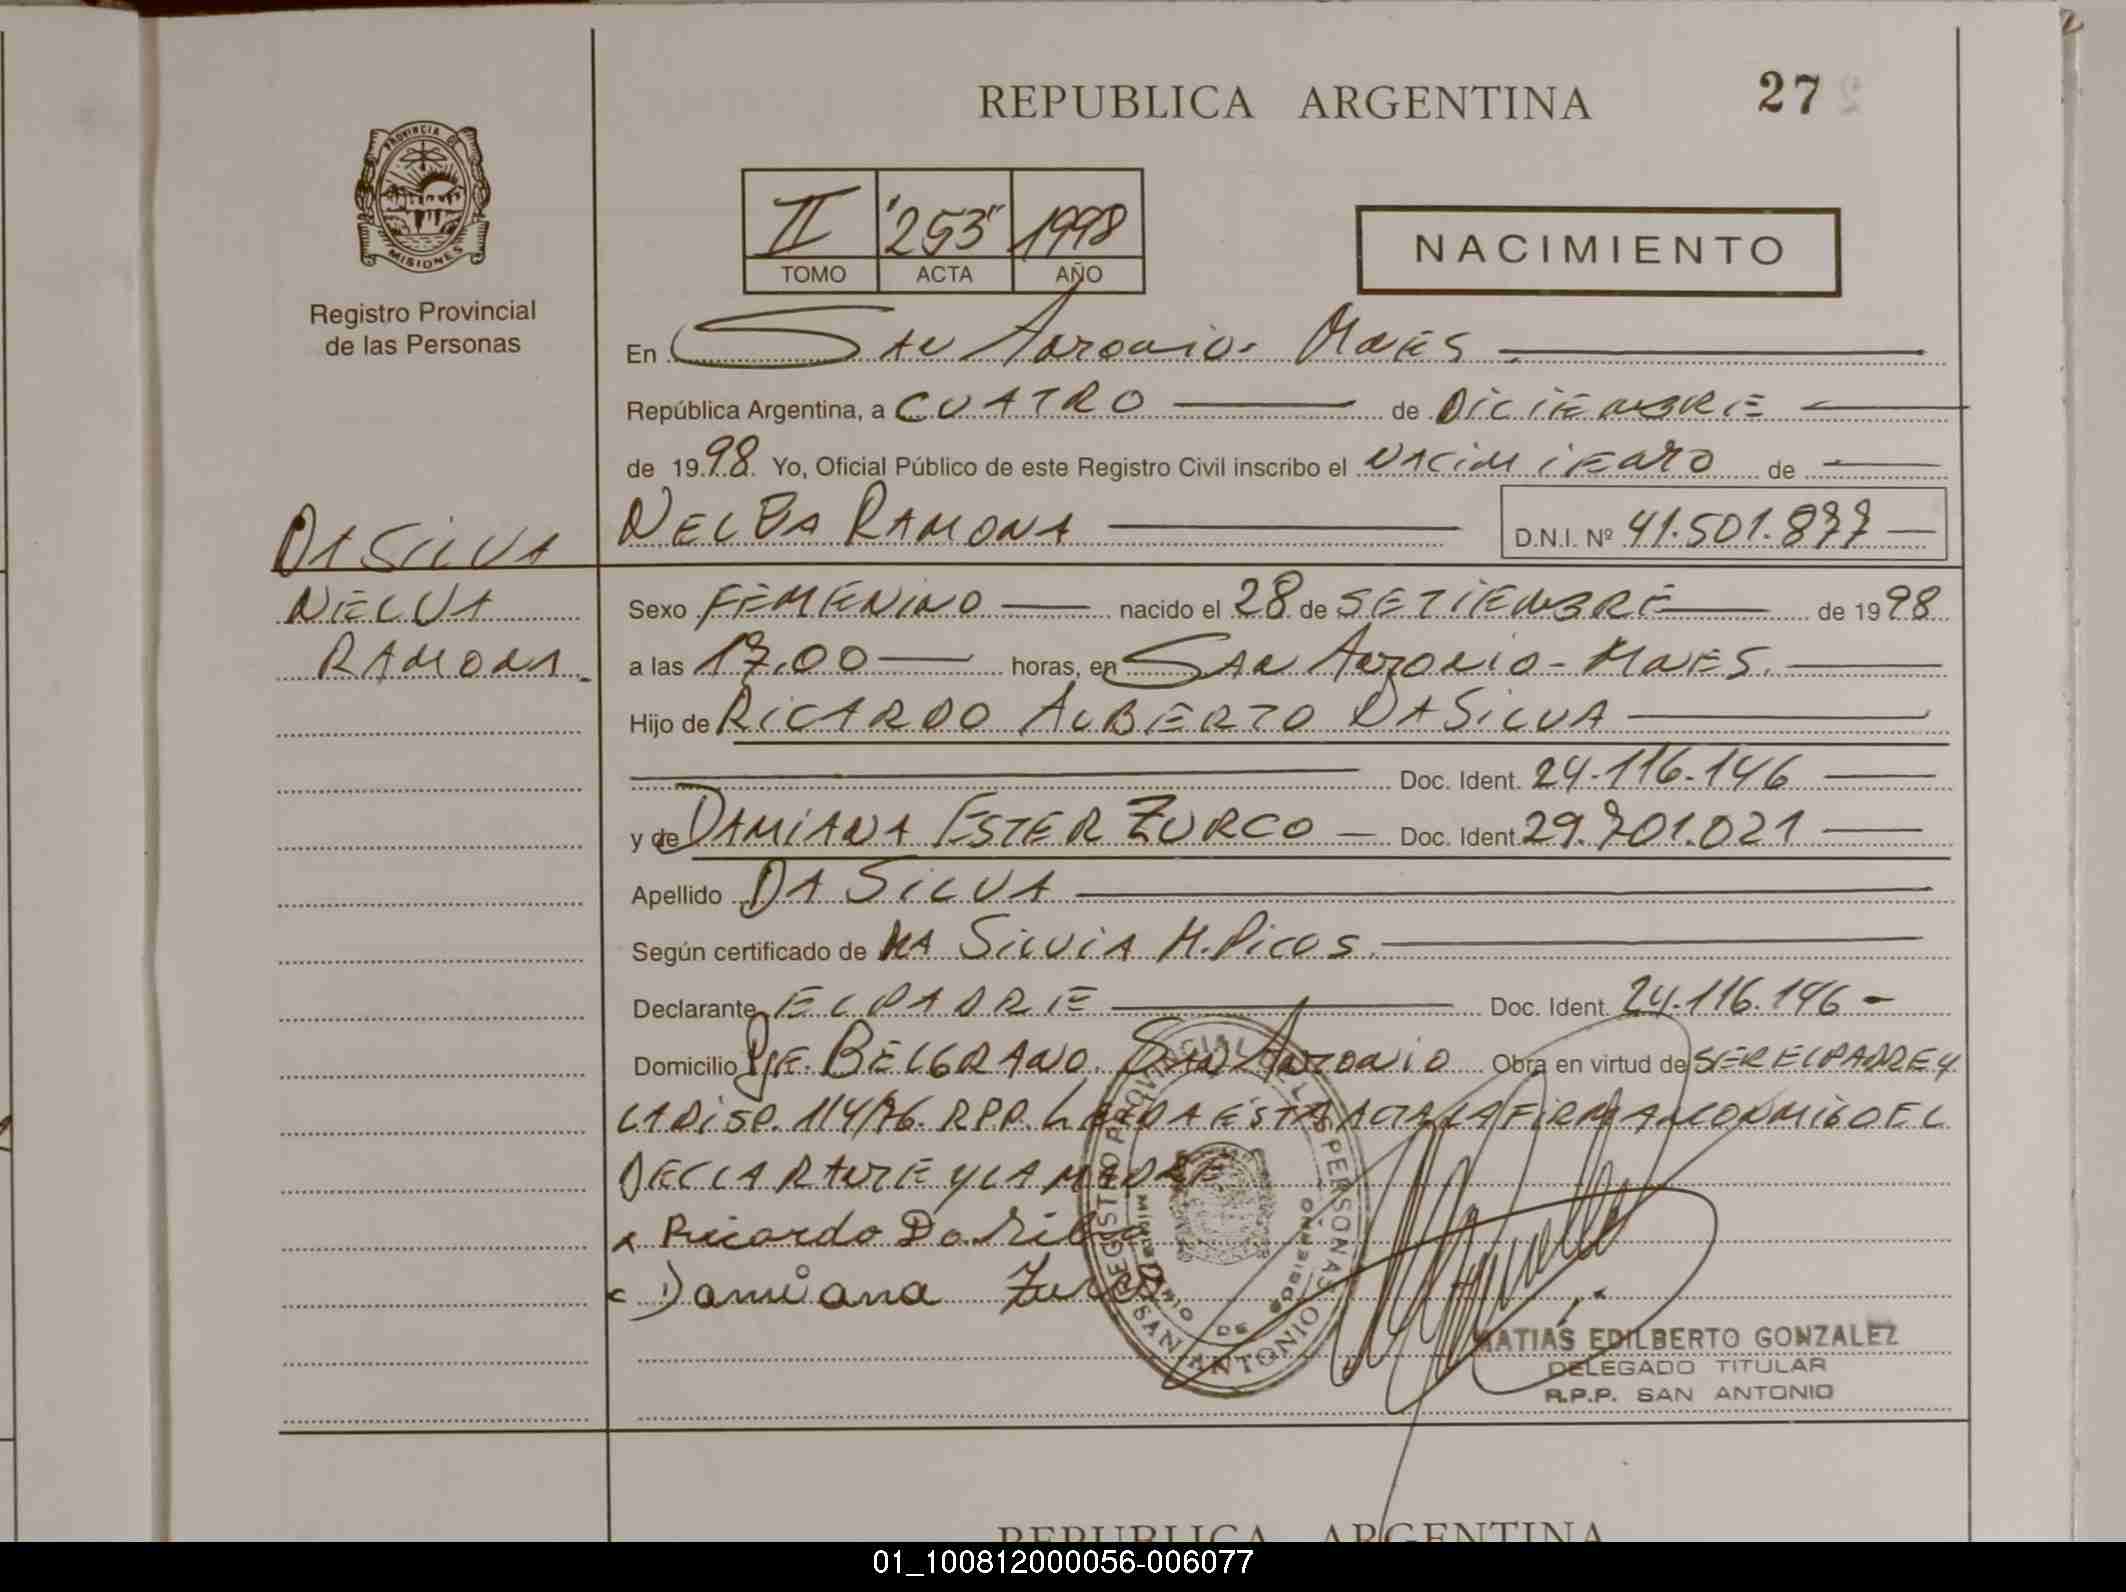 REPUBLICA ARGENTINA
27
PROVINCIA DE
MISIONES
Registro Provincial
de las Personas
II "253" 1998
TOMO ACTA AÑO
NACIMIENTO
En San Antonio - Mnes
República Argentina, a CUATRO de DICIEMBRE
de 1998. Yo, Oficial Público de este Registro Civil inscribo el NACIMIENTO de
NELBA RAMONA D.N.I. Nº 41.501.877
DA SILVA
NELVA
RAMONA.
Sexo FEMENINO nacido el 28 de SETIEMBRE de 1998
a las 17.00 horas, en SAN ANTONIO - MNES.
Hijo de RICARDO ALBERTO DA SILVA
Doc. Ident. 24.116.146
y de DAMIANA ESTER ZURCO Doc. Ident. 29.701.021
Apellido DA SILVA
Según certificado de SILVIA M. PICOS.
Declarante EL PADRE Doc. Ident. 24.116.146 -
Domicilio Pje. BELGRANO. SAN ANTONIO Obra en virtud de SER EL PADRE Y
LA DISP. 114/76. RPP. LEIDA ESTA ACTA LA FIRMAN CONMIGO EL
DECLARANTE Y LA MADRE
x Ricardo Da Silva
Damiana Zurco
REGISTRO PROVINCIAL DE LAS PERSONAS
MINISTERIO DE GOBIERNO
SAN ANTONIO
MATIAS EDILBERTO GONZALEZ
DELEGADO TITULAR
R.P.P. SAN ANTONIO
REPUBLICA ARGENTINA
01_100812000056-006077